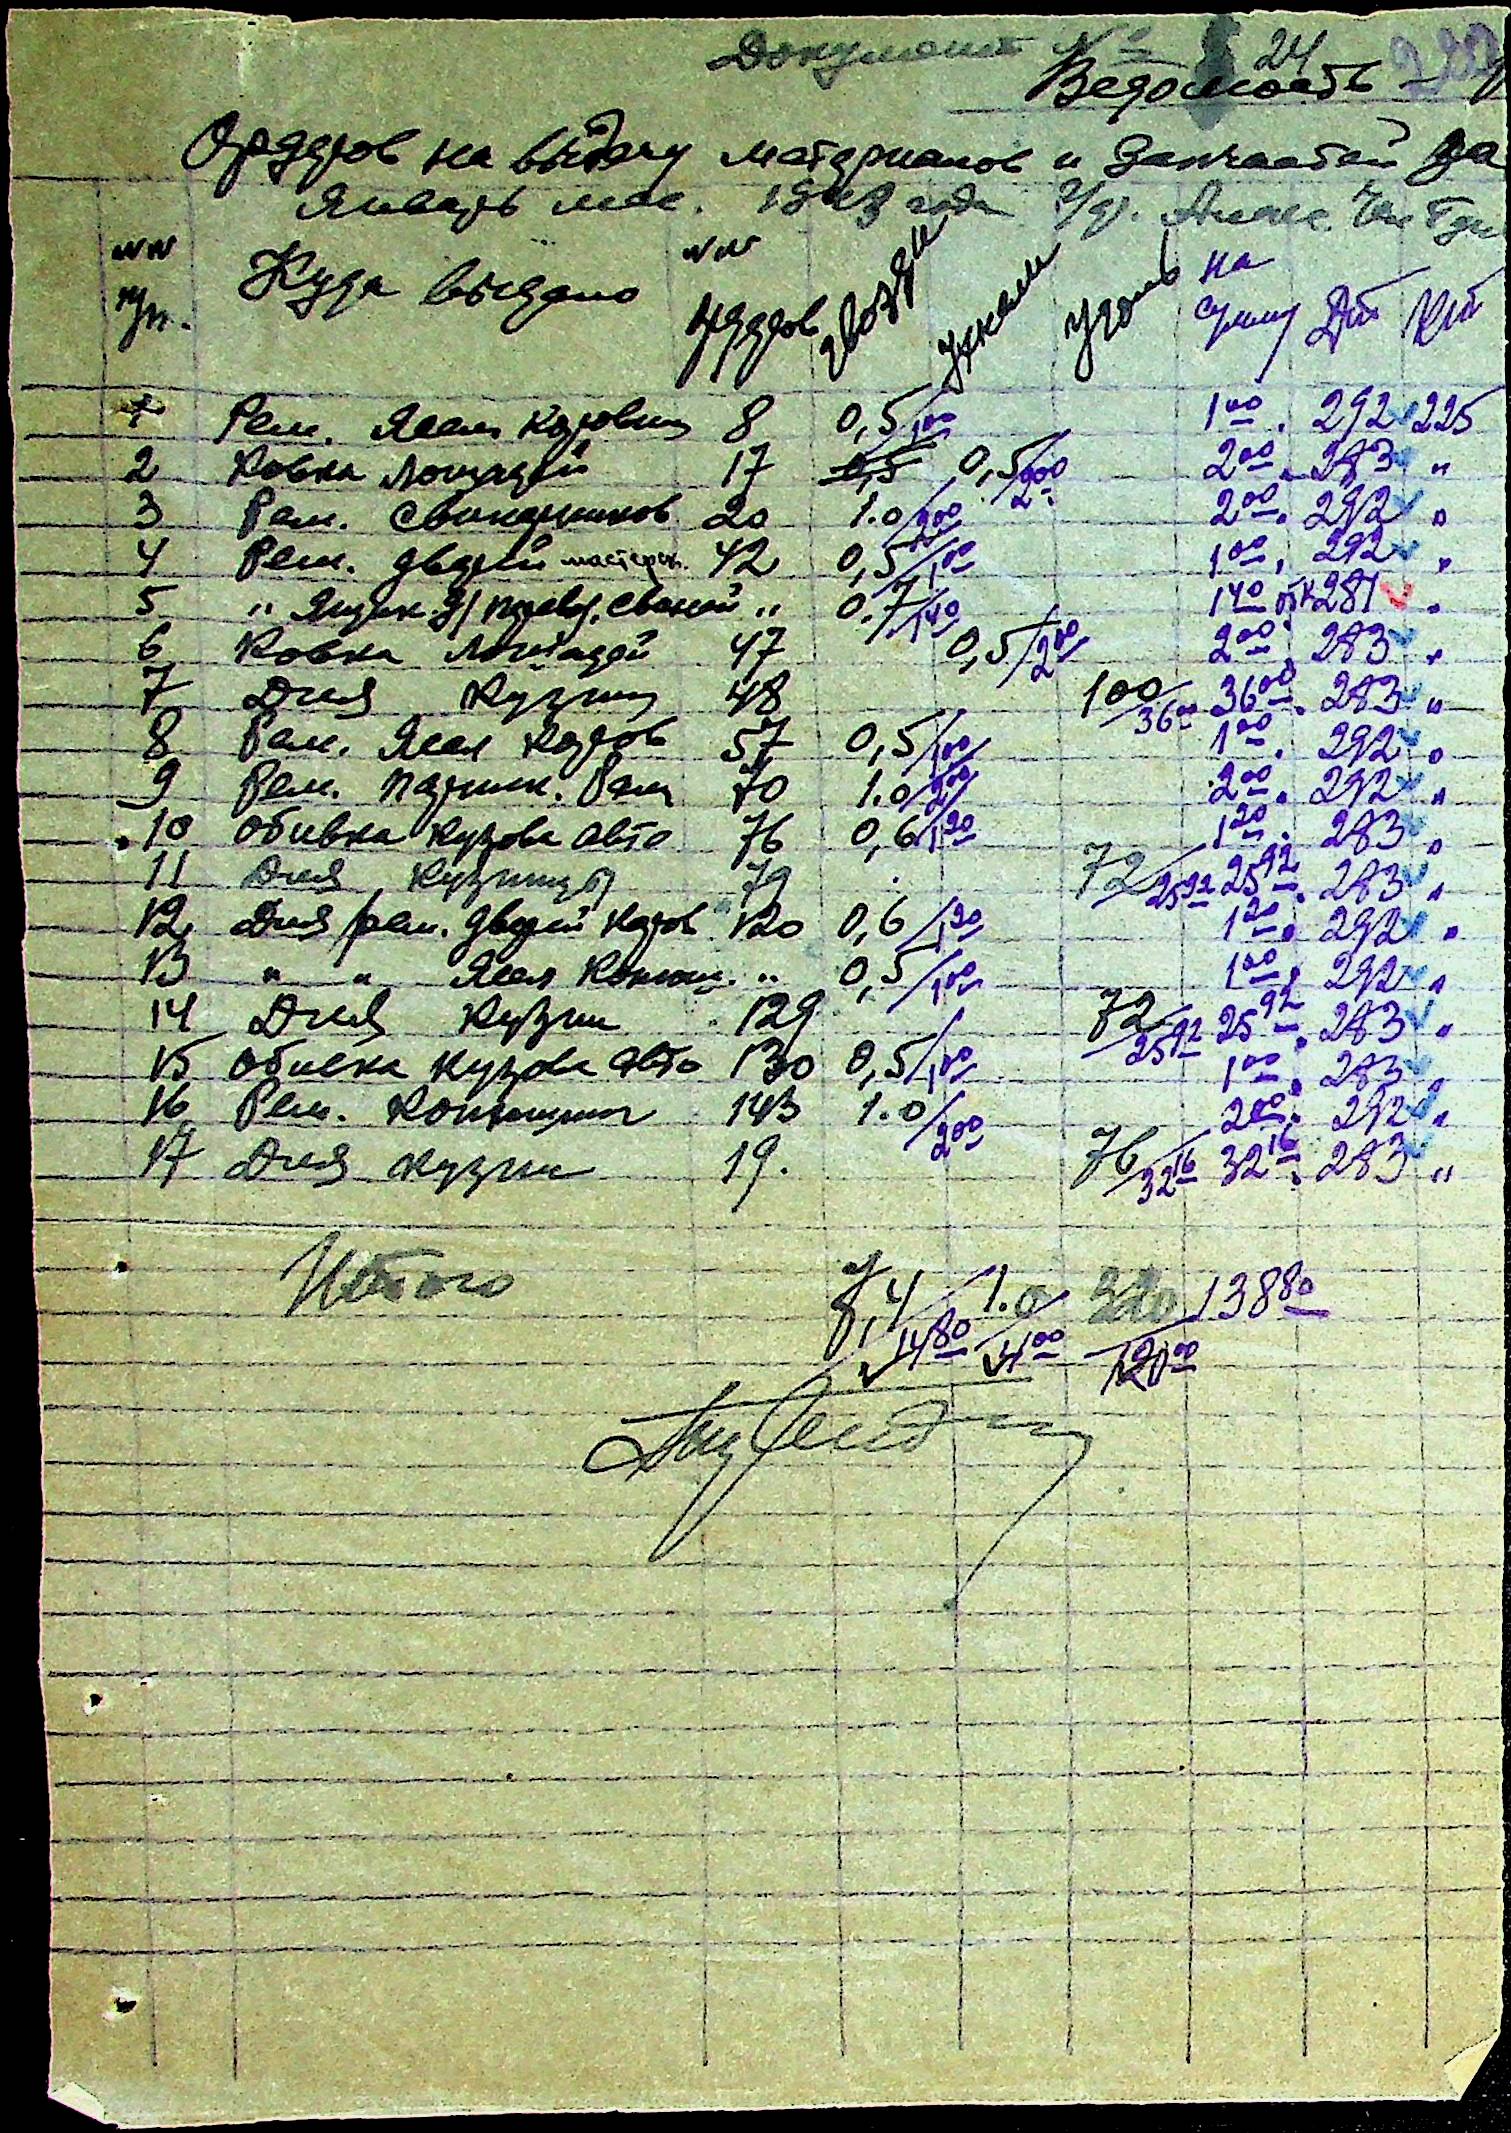 Документ № 24
Ведомость
Ордеров на выдачу материалов и запчастей за
Январь мес. 1943 года
№№ п/п. Куда выдано №№ ордеров гвозди ухнали уголь на сумму Дт Кт
1 Рем. Яслей Коровник 8 0,5/1 00 1 00. 292 225
2 Ковка Лошадей 17 0,5 0,5/2 00 2 00. 283 "
3 Рем. Свинарников 20 1.0/2 00 2 00. 292 "
4 Рем. дверей мастерск. 42 0,5/1 00 1 00. 292 "
5 " Ящик. д/ перевоз. свиней " 0.7/1 40 1 40 281 "
6 Ковка Лошадей 47 0,5/2 00 2 00. 283 "
7 Для Кузни 48 100/36 00 36 00. 283 "
8 Рем. Ясел Коров 57 0,5/1 00 1 00. 292 "
9 Рем. Парник. Рам 70 1.0/2 00 2 00. 292 "
10 Обивка Кузова авто 76 0,6/1 20 1 20. 283 "
11 Для Кузницы 79 72/25 92 25 92. 283 "
12 Для рем. дверей Коров 120 0,6/1 20 1 20. 292 "
13 " " Ясел Конюш. " 0,5/1 00 1 00. 292 "
14 Для Кузни 129 72/25 92 25 92. 283 "
15 Обивка Кузова авто 130 0,5/1 00 1 00. 283 "
16 Рем. Конюшни 143 1.0/2 00 2 00. 292 "
17 Для кузни 19. 76/32 16 32 16. 283 "
Итого 7,4/14 80 1.0/4 00 320/120 00 138 80